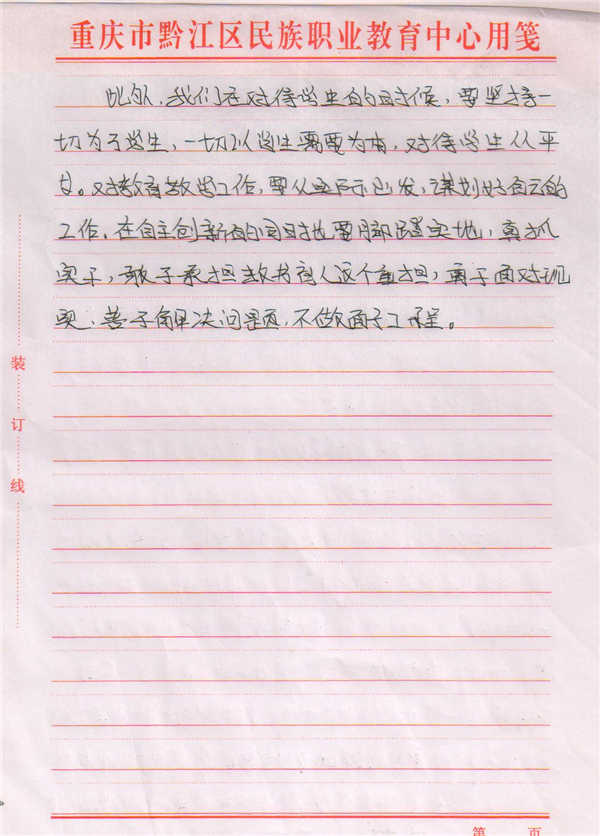 重庆市黔江区民族职业教育中心用笺
此外，我们在对待学生的时候，要坚持一
切为了学生，一切以学生需要为本，对待学生公平
。对教育教学工作，要从实际出发，谋划好自己的
工作。在自主创新的同时也要脚踏实地，真抓
实干，敢于承担教书育人这个重担，勇于面对现
实，善于解决问题，不做面子工程。
装
订
线
第 页